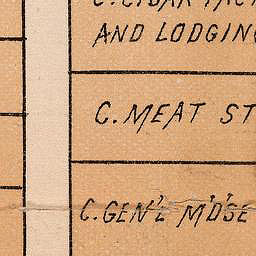 AND LODGING
C. MEAT ST
C. GEN'L M'D'SE